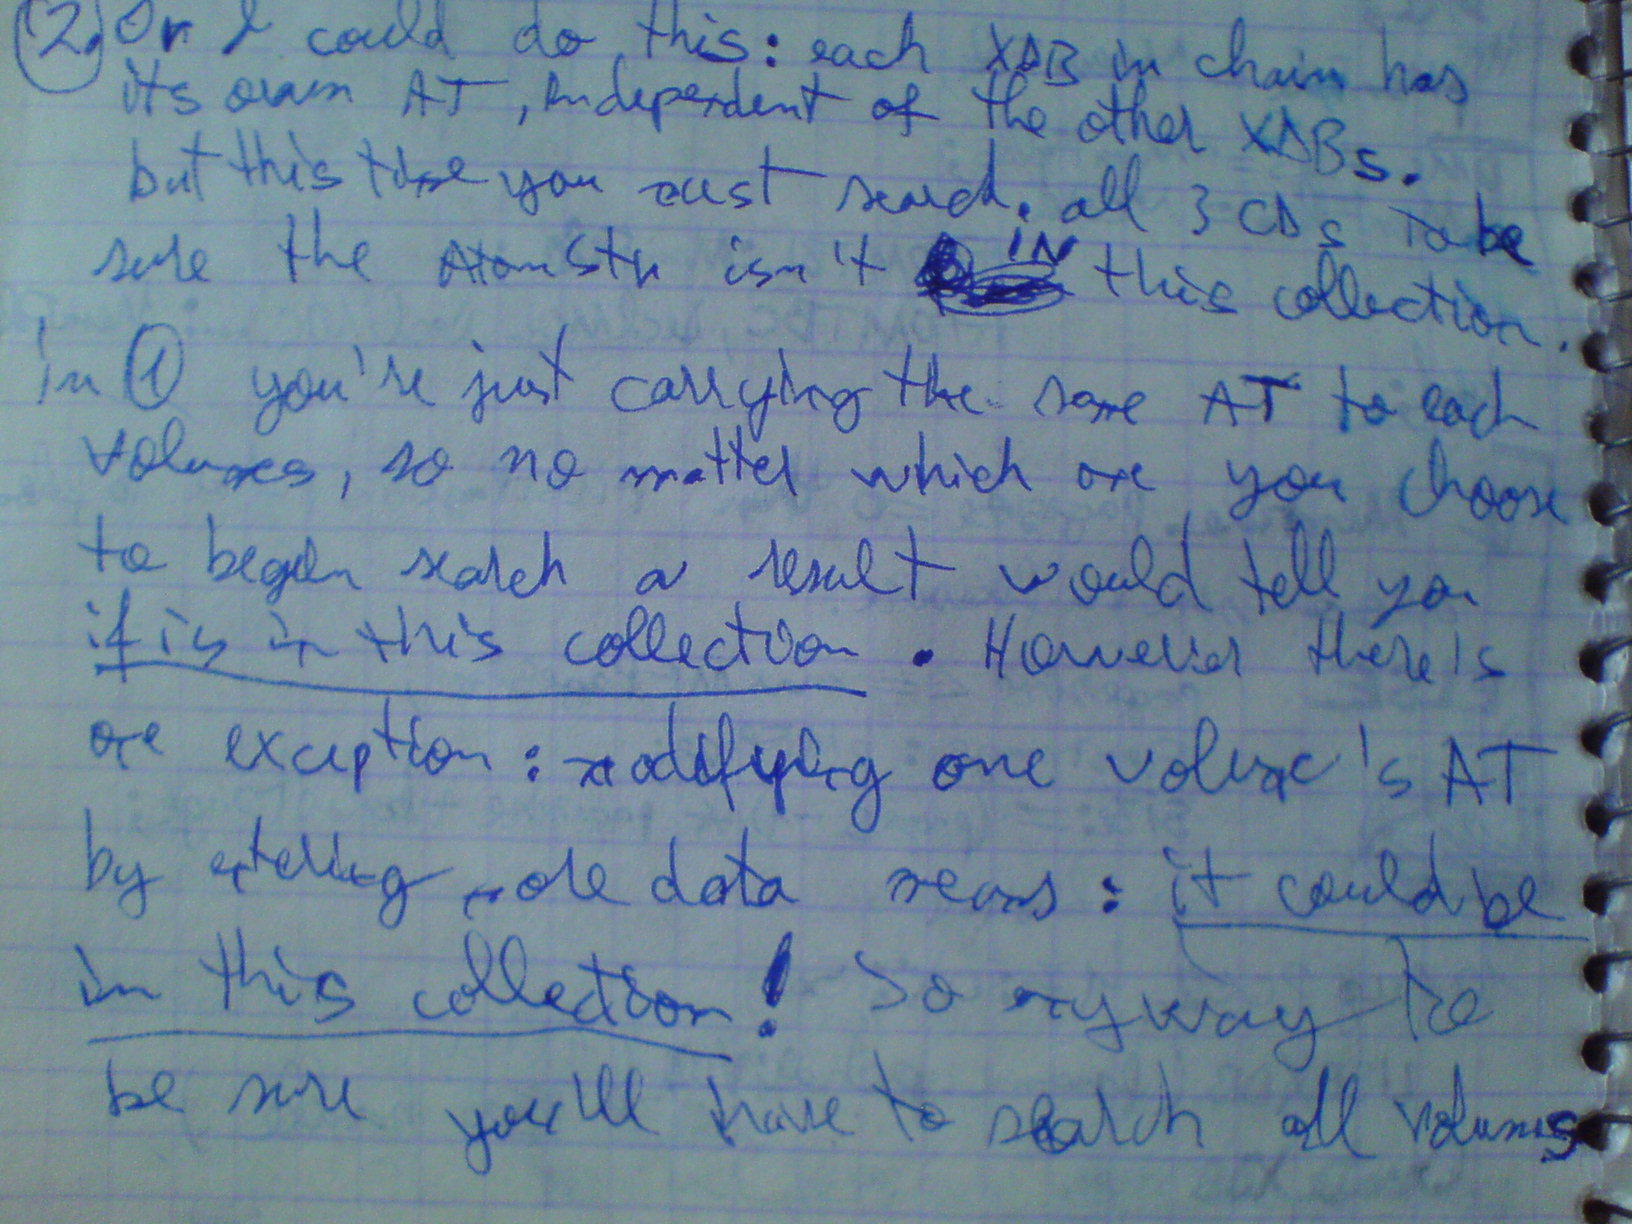 2. Or I could do this: each XDB in chain has
its own AT, independent of the other XDBs.
but this time you must search. all 3 CDs to be
sure the Atomstr isn't IN this collection.
in 1 you're just carrying the same AT to each
volumes, so no matter which one you choose
to begin search a result would tell you
if is in this collection. However there's
one exception: modifying one volume's AT
by entering more data means: it could be
in this collection! So anyway to
be sure you'll have to search all volumes